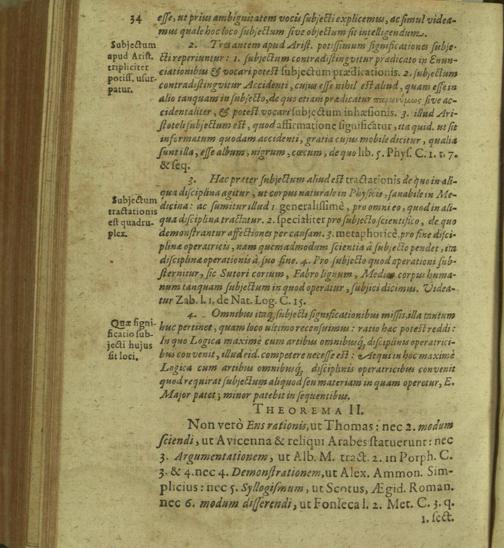 34
esse, ut prius ambiguitatem vocis subjecti explicemus, ac simul videa-
mus quale hoc loco subjectum sive objectum sit intelligendum.
Subjectum
apud Arist.
tripliciter
potiss. usur-
patur.
2. Tres autem apud Arist. potissimum significationes subje-
cti reperiuntur: 1. subjectum contradistinguitur prædicato in Enun-
ciationibus & vocari potest subjectum prædicationis. 2. subjectum
contradistinguitur Accidenti, cujus esse nihil est aliud, quam esse in
alio tanquam in subjecto, de quo etiam prædicatur sive ac-
cidentaliter, & potest vocari subjectum inhæsionis. 3. illud Ari-
stoteli subjectum est, quod affirmatione significatur, ita quid, ut sit
informatum quodam accidenti, gratia cujus mobile dicitur, qualia
sunt illa, esse album, nigrum, cæcum, de quo lib. 5. Phys. C. 1. t. 7.
& seq.
Subjectum
tractationis
est quadru-
plex.
3. Hac præter subjectum aliud est tractationis de quo in ali-
qua disciplina agitur, ut corpus naturale in Physicis, sanabile in Me-
dicina: ac sumitur illud 1. generalissimè, pro omni eo, quod in ali-
qua disciplina tractatur. 2. specialiter pro subjecto scientifico, de quo
demonstrantur affectiones per causam. 3. metaphoricè pro fine disci-
plinæ operatricis, nam quemadmodum scientia à subjecto pendet, ita
disciplina operatrix à suo fine. 4. Pro subjecto quod operationi sub-
sternitur, sic Sutori corium, Fabro lignum, Medico corpus huma-
num tanquam subjectum in quod operatur, subjici dicimus. Videa-
tur Zab. l. 1. de Nat. Log. C. 15.
Quæ signi-
ficatio sub-
jecti hujus
sit loci.
4. Omnibus itaq; subjecti significationibus missis, illa tantum
huc pertinet, quam loco ultimo recensuimus: ratio hæc potest reddi:
In quo Logica maximè cum artibus omnibusq; disciplinis operatrici-
bus convenit, illud eid. competere necesse est: Atqui in hoc maximè
Logica cum artibus omnibusq; disciplinis operatricibus convenit
quod requirat subjectum aliquod seu materiam in quam operetur, E.
Major patet; minor patebit in sequentibus.
THEOREMA II.
Non verò Ens rationis, ut Thomas: nec 2. modum
sciendi, ut Avicenna & reliqui Arabes statuerunt: nec
3. Argumentationem, ut Alb. M. tract. 2. in Porph. C.
3. & 4. nec 4. Demonstrationem, ut Alex. Ammon. Sim-
plicius: nec 5. Syllogismum, ut Scotus, Ægid. Roman.
nec 6. modum disserendi, ut Fonseca l. 2. Met. C. 3. q.
1. sect.